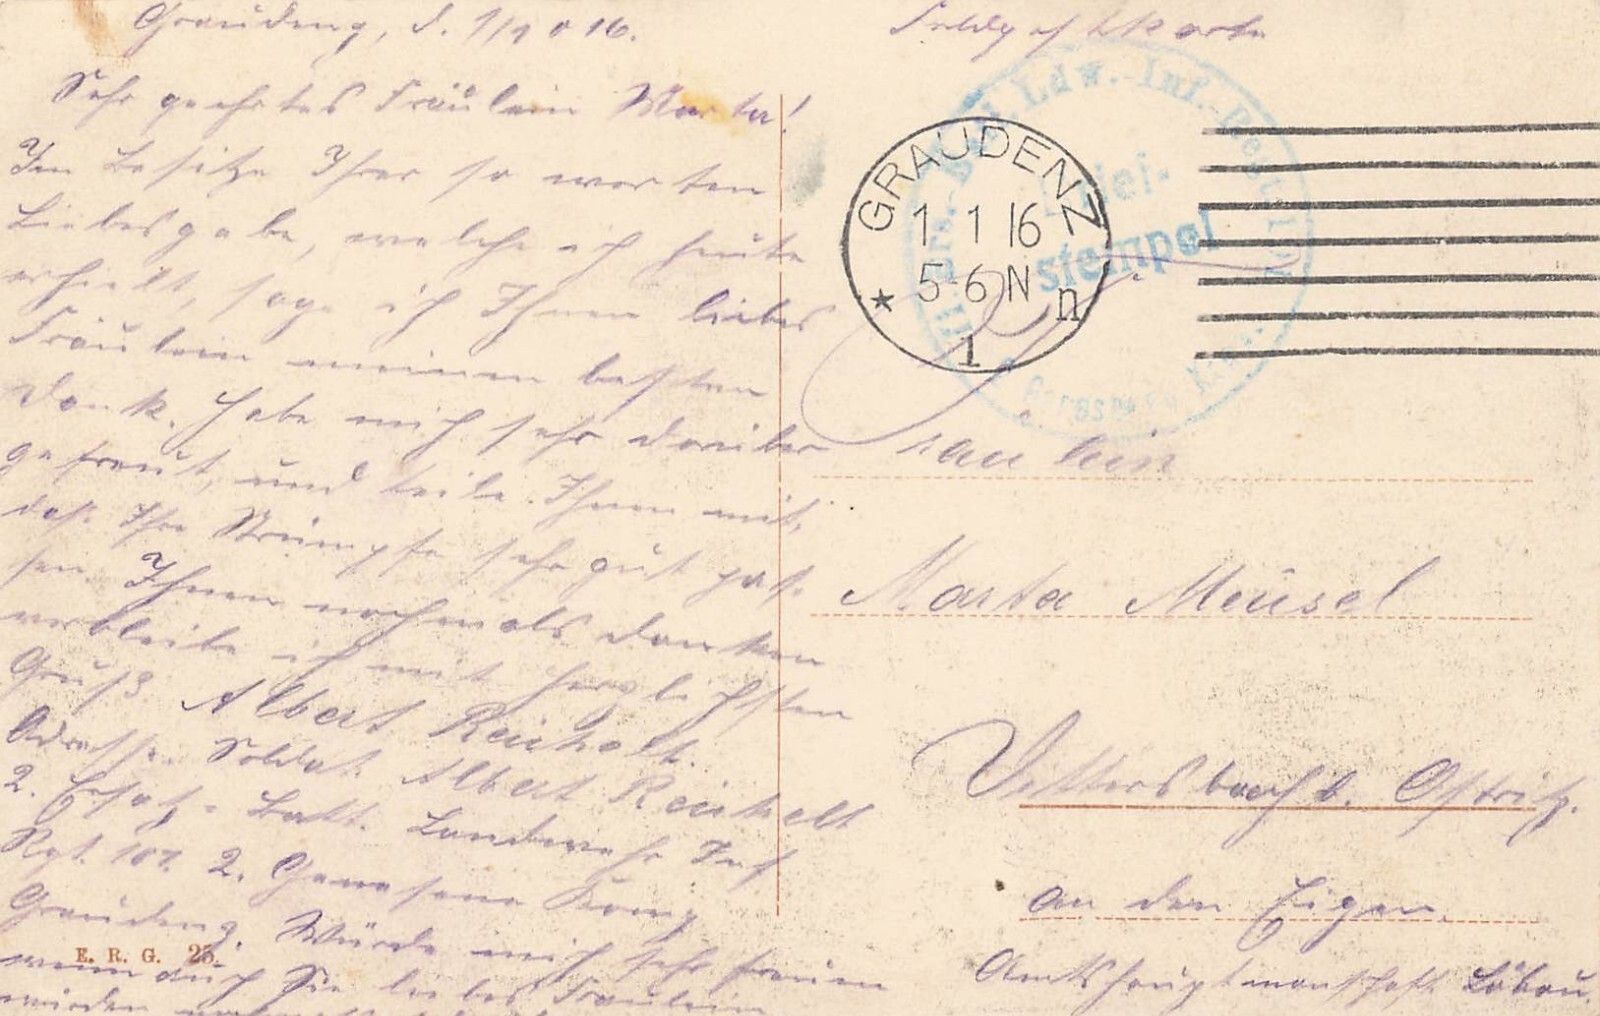 Graudenz, d. 1/1 1916.
Sehr geehrtes Fräulein Marta!
Im Besitze Ihrer so werten
Liebesgabe, welche ich heute
erhielt, sage ich Ihnen liebes
Fräulein meinen besten
Dank. Habe mich sehr darüber
gefreut, und teile Ihnen mit,
daß Ihre Strümpfe sehr gut pas-
sen. Ihnen nochmals dankend
verbleibe ich mit herzlichsten
Gruß Albert Reichelt.
Adresse. Soldat Albert Reichelt
2. Ersatz-Batt. Landwehr Inf
Rgt. 107. 2. Genesene Komp
Graudenz. Würde mich sehr freuen
wenn auch Sie liebes Fräulein
würden
E. R. G. 25.
Feldpostkarte
Ldw.-Inf.-Regt
Brief-
stempel
GRAUDENZ
1 1 16
5-6 N
n
1
Fräulein
Marta Meusel
b. Ostritz.
an den Eigen.
Amtshauptmanschaft Löbau.